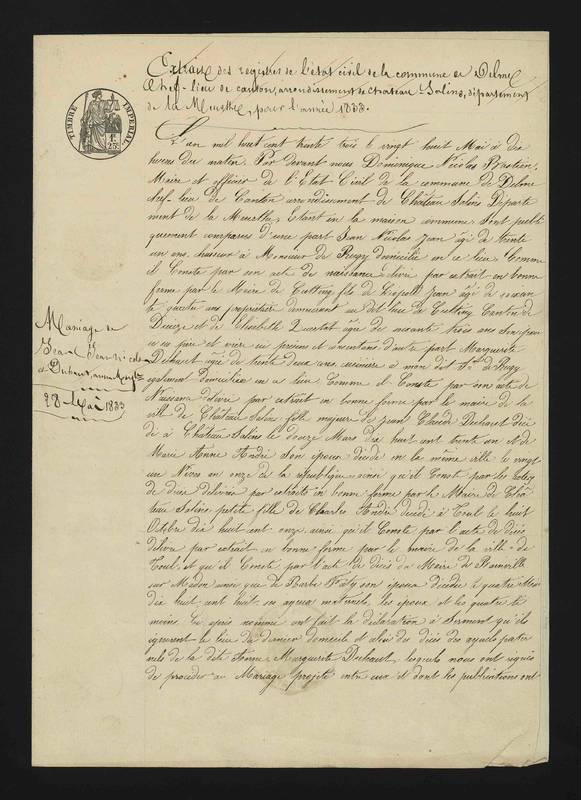 Extrait des registres de l'état civil de la commune de Delme
Chef-lieu de canton, arrondissement de Chateau-Salins, département
de la Meurthe, pour l'année 1833.
TIMBRE IMPERIAL
1F 25C
L'an mil huit cent trente trois le vingt huit Mai à dix
heures du matin. Par devant nous Dominique Nicolas Bastien
Maire et officier de l'Etat Civil de la commune de Delme
chef-lieu de Canton arrondissement de Château Salins Departe
ment de la Meurthe, Etant en la maison commune, sont publi
quement comparus d'une part Jean Nicolas Jean âgé de trente
un ans, chasseur à Monsieur de Rugy domicilié en ce lieu. Comme
il Conste par son acte de naissance délivré par extrait en bonne
forme par le Maire de Cutting, fils de Jean âgé de soixan
te quatre ans propriétaire demeurant au dit lieu de Cutting Canton de
Dieuze et de Elisabeth âgée de soixante trois ans
ses père et mère ici présens et consentans d'autre part Marguerite
Duhaut âgée de trente deux ans cuisinière à mon dit Sr. de Rugy
également Domiciliée en ce lieu. Comme il Conste par son acte de
Naissance délivré par extrait en bonne forme par le maire de la
ville de Château Salins fille majeure de Jean Claude Duhaut décé
dé à Château Salins le douze Mars dix huit cent trente un et de
Marie Anne André son épouse décédée en la même ville le vingt
un Nivos an onze de la république ainsi qu'il Conste par les
de délivrés par extraits en bonne forme par le Maire de Châ
teau Salins petite fille de Charles André décédé à Toul le huit
Octobre dix huit cent onze ainsi qu'il Conste par l'acte de décès
délivré par extrait en bonne forme par le maire de la ville de
Toul, et que il Conste par l'acte de décès du Maire de Bainville
sur Madon ainsi que de Barbe son épouse décédée le quatre
dix huit cent huit ses ayeux maternels, les époux et les quatre té
moins ci après nommés ont fait la déclaration à Serment qu'ils
ignorent le lieu du dernier domicile et celui du décès des ayeuls pater
nels de la dite Anne Marguerite Duhaut, lesquels nous ont requis
de procéder au Mariage projeté entre eux et dont les publications ont
Mariage de
Jean Jean Nicolas
et Duhaut, anne Margte
28 Mai 1833